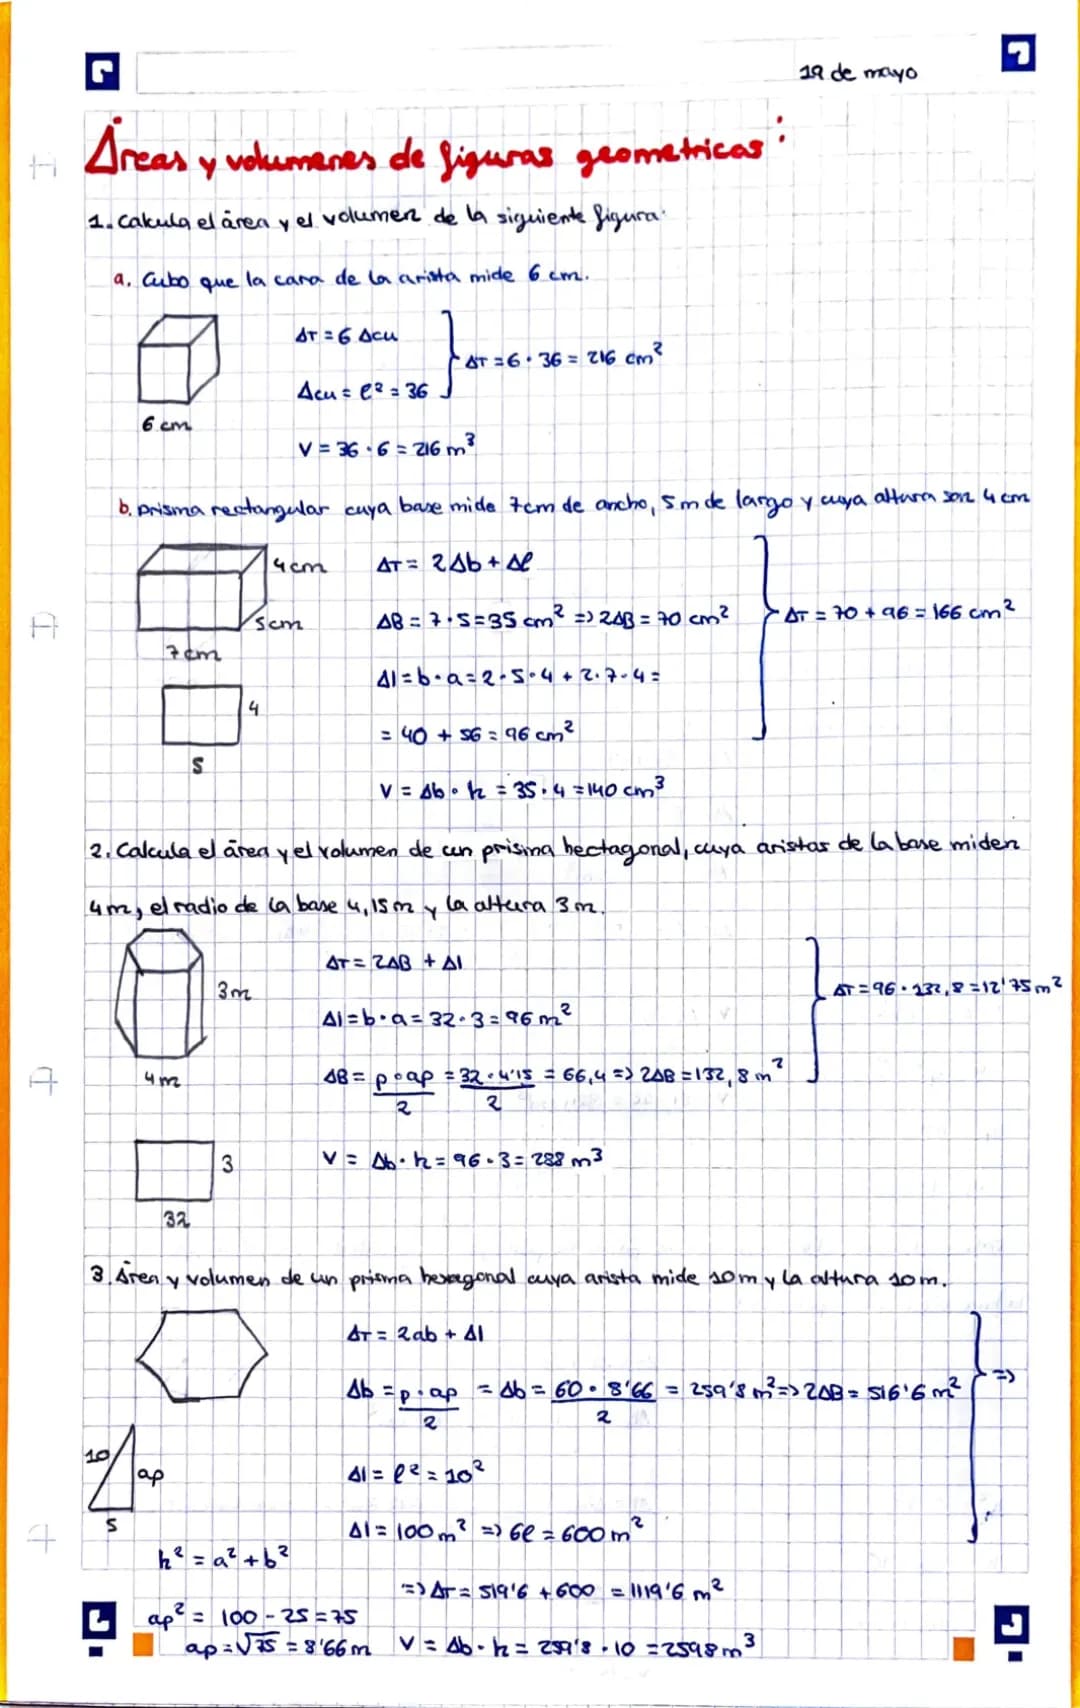 19 de mayo
Áreas y volumenes de figuras geometricas:
1. Calcula el área y el volumen de la siguiente figura:
a. Cubo que la cara de la arista mide 6 cm.
AT = 6 Acu
AT = 6 · 36 = 216 cm²
Acu = l² = 36
6 cm
V = 36 · 6 = 216 m³
b. prisma rectangular cuya base mide 7cm de ancho, 5m de largo y cuya altura son 4 cm
4cm
AT = 2Ab + Al
5cm
AB = 7·5=35 cm² => 2AB = 70 cm²
AT = 70 + 96 = 166 cm²
7cm
Al = b·a = 2·5·4 + 2·7·4 =
4
= 40 + 56 = 96 cm²
5
V = Ab · h = 35·4 = 140 cm³
2. Calcula el área y el volumen de un prisma hectagonal, cuya aristas de la base miden
4m, el radio de la base 4,15m y la altura 3m.
AT = 2AB + Al
3m
AT = 96 · 132,8 = 12'75m²
Al = b·a = 32·3 = 96 m²
4m
AB = p·ap/2 = 32·4'15/2 = 66,4 => 2AB = 132,8 m²
3
V = Ab · h = 96·3 = 288 m³
32
3. Área y volumen de un prisma hexagonal cuya arista mide 10m y la altura 10m.
AT = 2ab + Al
Ab = p·ap/2 = Ab = 60·8'66/2 = 259'8 m² => 2AB = 516'6 m² =>
10
ap
5
Al = l² = 10²
Al = 100m² => 6l = 600m²
h² = a² + b²
=> AT = 519'6 + 600 = 1119'6 m²
ap² = 100 - 25 = 75
ap = √75 = 8'66m
V = Ab · h = 259'8 · 10 = 2598m³